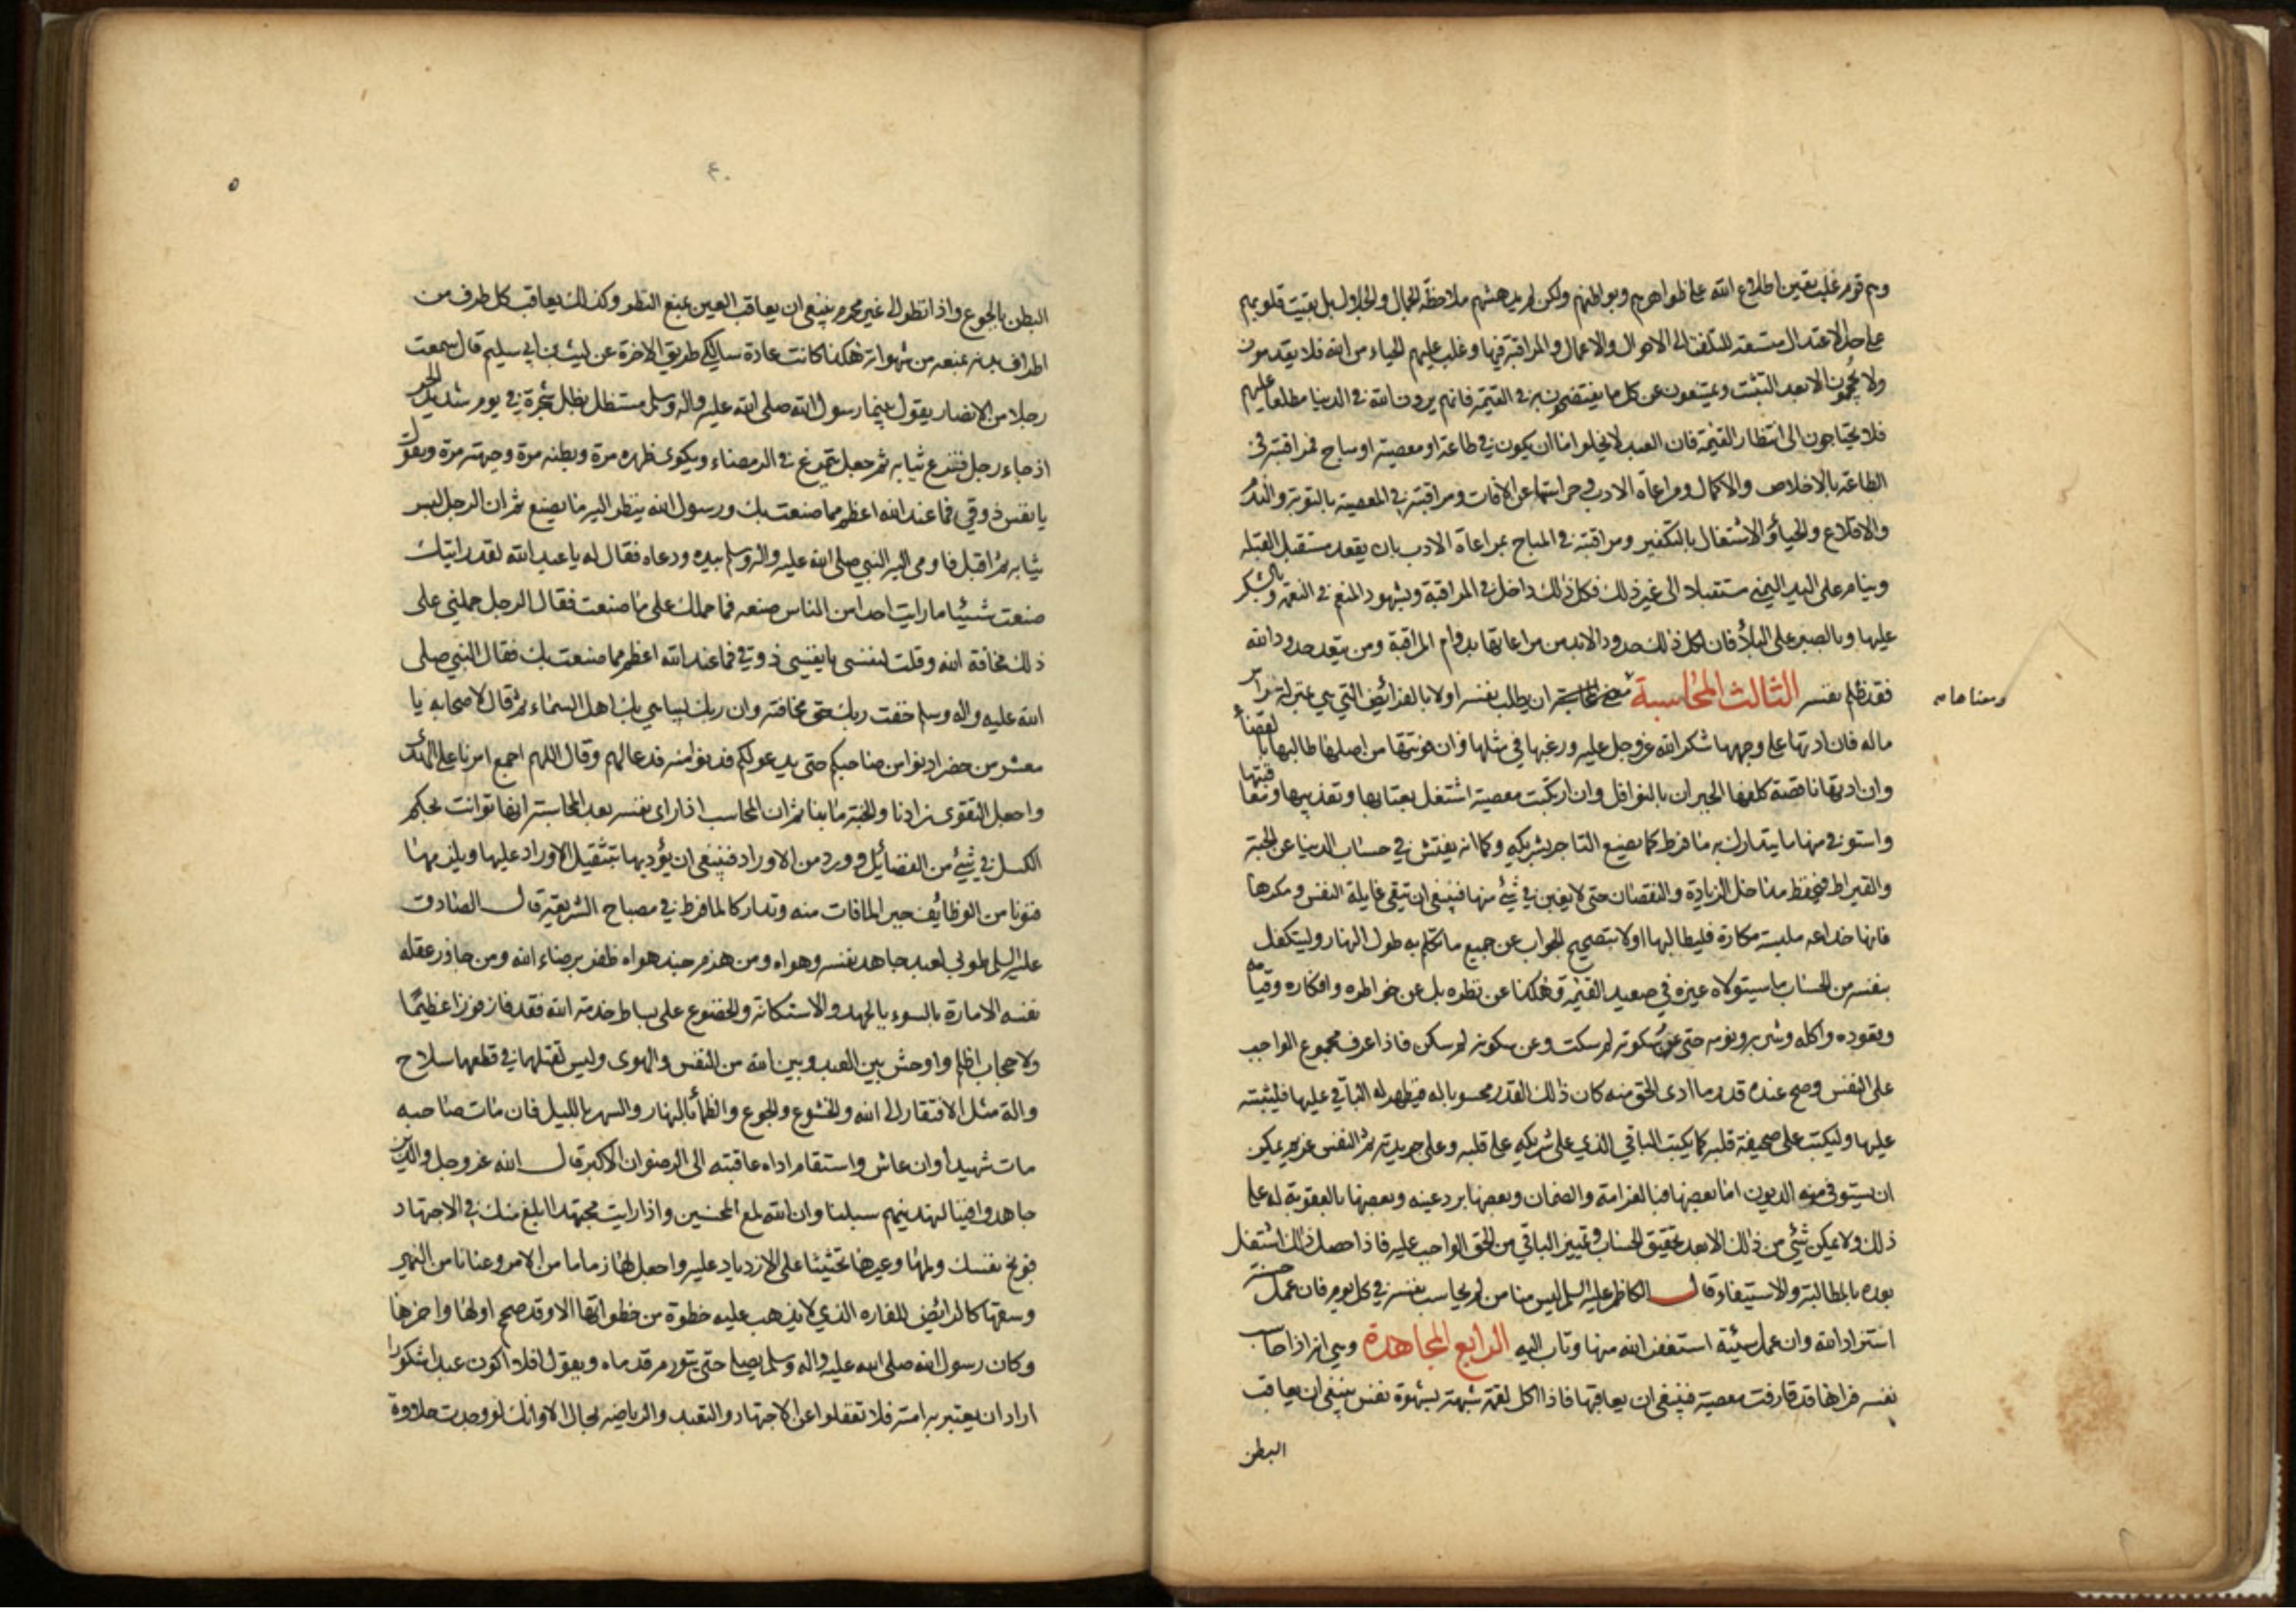 وهم قوم غلب يقين اطلاع الله على ظواهرهم وبواطنهم ولكن لم يدهشهم ملاحظة الجمال والجلال بل بقيت قلوبهم
على حد الاعتدال متسعة للتلفت الى الاحوال والاعمال والمراقبة فيها وغلب عليهم الحياء من الله فلا يقدمون
ولا يحجمون الا بعد التثبت ويمتنعون عن كل ما يفتضحون به في القيمة فانهم يرون الله في الدنيا مطلعا عليهم
فلا يحتاجون الى انتظار القيمة فان العبد لا يخلو اما ان يكون في طاعة او معصية او مباح فمراقبته في
الطاعة بالاخلاص والاكمال ومراعاة الادب وحراستها عن الآفات ومراقبته في المعصية بالتوبة والندم
والاقلاع والحياء والاشتغال بالتكفير ومراقبته في المباح بمراعاة الادب بان يقعد مستقبل القبلة
وينام على اليد اليمنى مستقبلا الى غير ذلك فكل ذلك داخل في المراقبة وبشهود المنعم في النعمة وبالشكر
عليها وبالصبر على البلاء فان لكل ذلك حدود الابد من مراعاتها بدوام المراقبة ومن يتعد حدود الله
فقد ظلم نفسه الثالث المحاسبة ان يطلب نفسه اولا بالفرائض التي هي بمنزلة راس
ومعناها
ماله فان ادتها على وجهها شكر الله عز وجل عليه ورغبها في مثلها وان فوتتها من اصلها طالبها بالقضاء
وان ادتها ناقصة كلفها الجبران بالنوافل وان ارتكبت معصية اشتغل بعتابها وتعذيبها ومعاقبتها
واستوفى منها ما يتدارك به ما فرط كما يصنع التاجر بشريكه وكما انه يفتش في حساب الدنيا عن الحبة
والقيراط فيحفظ مداخل الزيادة والنقصان حتى لا يغبن في شئ منها فينبغي ان يتقى غايلة النفس ومكرها
فانها خداعه ملبسة مكارة فليطالبها اولا بتصحيح الجواب عن جميع ما تكلم به طول النهار وليتكفل
بنفسه من الحساب ما سيتولاه غيره في صعيد القيمة وهكذا عن نظره بل عن خواطره وافكاره وقيامه
وقعوده واكله وشربه ونومه حتى عن سكوته لم سكت وعن سكونه لم سكن فاذا عرف مجموع الواجب
على النفس وصح عنده قدر ما ادى الحق منه كان ذلك القدر محسوبا له فيظهر له الباقي عليها فليثبته
عليها وليكتب على صحيفة قلبه كما يكتب الباقي الذي على شريكه على قلبه وعلى جريدته ثم النفس غريم يمكن
ان يستوفى منه الديون اما بعضها فبالغرامة والضمان وبعضها برد عينه وبعضها بالعقوبة له على
ذلك ولا يمكن شئ من ذلك الا بعد تحقيق الحساب وتمييز الباقي من الحق الواجب عليه فاذا حصل ذلك اشتغل
بعده بالمطالبة والاستيفاء قال الكاظم عليه السلم ليس منا من لم يحاسب نفسه في كل يوم فان عمل حسنة
استزاد الله وان عمل سيئة استغفر الله منها وتاب اليه الرابع المجاهدة وهي انه اذا حاسب
نفسه فراها قد قارفت معصية فينبغي ان يعاقبها فاذا اكل لقمة شبهة بشهوة نفس ينبغي ان يعاقب
البطن
٤٠
٥
البطن بالجوع واذا نظر الى غير محرم ينبغي ان يعاقب العين بمنع النظر وكذلك يعاقب كل طرف من
اطراف بدنه بمنعه من شهواته هكذا كانت عادة سالكي طريق الاخرة عن ليث بن ابي سليم قال سمعت
رجلا من الانصار يقول بينما رسول الله صلى الله عليه واله وسلم مستظل بظل شجرة في يوم شديد الحر
اذ جاء رجل فنزع ثيابه ثم جعل يتمرغ في الرمضاء ويكوى ظهره مرة وبطنه مرة وجبهته مرة ويقول
يا نفس ذوقي فما عند الله اعظم مما صنعت بك ورسول الله ينظر اليه ما يصنع ثم ان الرجل لبس
ثيابه ثم اقبل فاومى اليه النبي صلى الله عليه واله وسلم بيده ودعاه فقال له يا عبد الله لقد رايتك
صنعت شيئا ما رايت احدا من الناس صنعه فما حملك على ما صنعت فقال الرجل حملني على
ذلك مخافة الله وقلت لنفسى يا نفسى ذوقي فما عند الله اعظم مما صنعت بك فقال النبي صلى
الله عليه واله وسلم خفت ربك حق مخافته وان ربك ليباهي بك اهل السماء ثم قال لاصحابه يا
معشر من حضر ادنوا من صاحبكم حتى يدعو لكم فدنوا منه فدعا لهم وقال اللهم اجمع امرنا على الهدى
واجعل التقوى زادنا والجنة مابنا ثم ان المحاسب اذا راى نفسه بعد المحاسبة انها توانت بحكم
الكسل في شئ من الفضائل و ورد من الاوراد فينبغي ان يؤدبها بتثقيل الاوراد عليها ويلزمها
فنونا من الوظايف جبرا لما فات منه وتداركا لما فرط في مصباح الشريعة قال الصادق
عليه السلم طوبى لعبد جاهد نفسه وهواه ومن هزم جند هواه ظفر برضاء الله ومن جاوز عقله
نفسه الامارة بالسوء بالجهد والاستكانة والخضوع على بساط خدمة الله فقد فاز فوزا عظيمًا
ولا حجاب اظلم واوحش بين العبد وبين الله من النفس والهوى وليس لقتلهما في قطعهما سلاح
والة مثل الافتقار الى الله والخشوع والجوع والظمأ بالنهار والسهر بالليل فان مات صاحبه
مات شهيدا وان عاش واستقام اداه عاقبته الى الرضوان الاكبر قال الله عز وجل والذين
جاهدوا فينا لنهدينهم سبلنا وان الله لمع المحسنين واذا رايت مجتهدا ابلغ منك في الاجتهاد
فوبخ نفسك ولمها وعيرها تحثيثا على الازدياد عليه واجعل لها زماما من الامر وعنانا من النهى
وسقها كالرائض للفاره الذي لا يذهب عليه خطوة من خطواتها الا وقد صحح اولها واخرها
وكان رسول الله صلى الله عليه واله وسلم يصلى حتى يتورم قدماه ويقول افلا اكون عبدا شكورا
اراد ان يعتبر به امته فلا تغفلوا عن الاجتهاد والتعبد والرياضه بحال الا وانك لو وجدت حلاوة